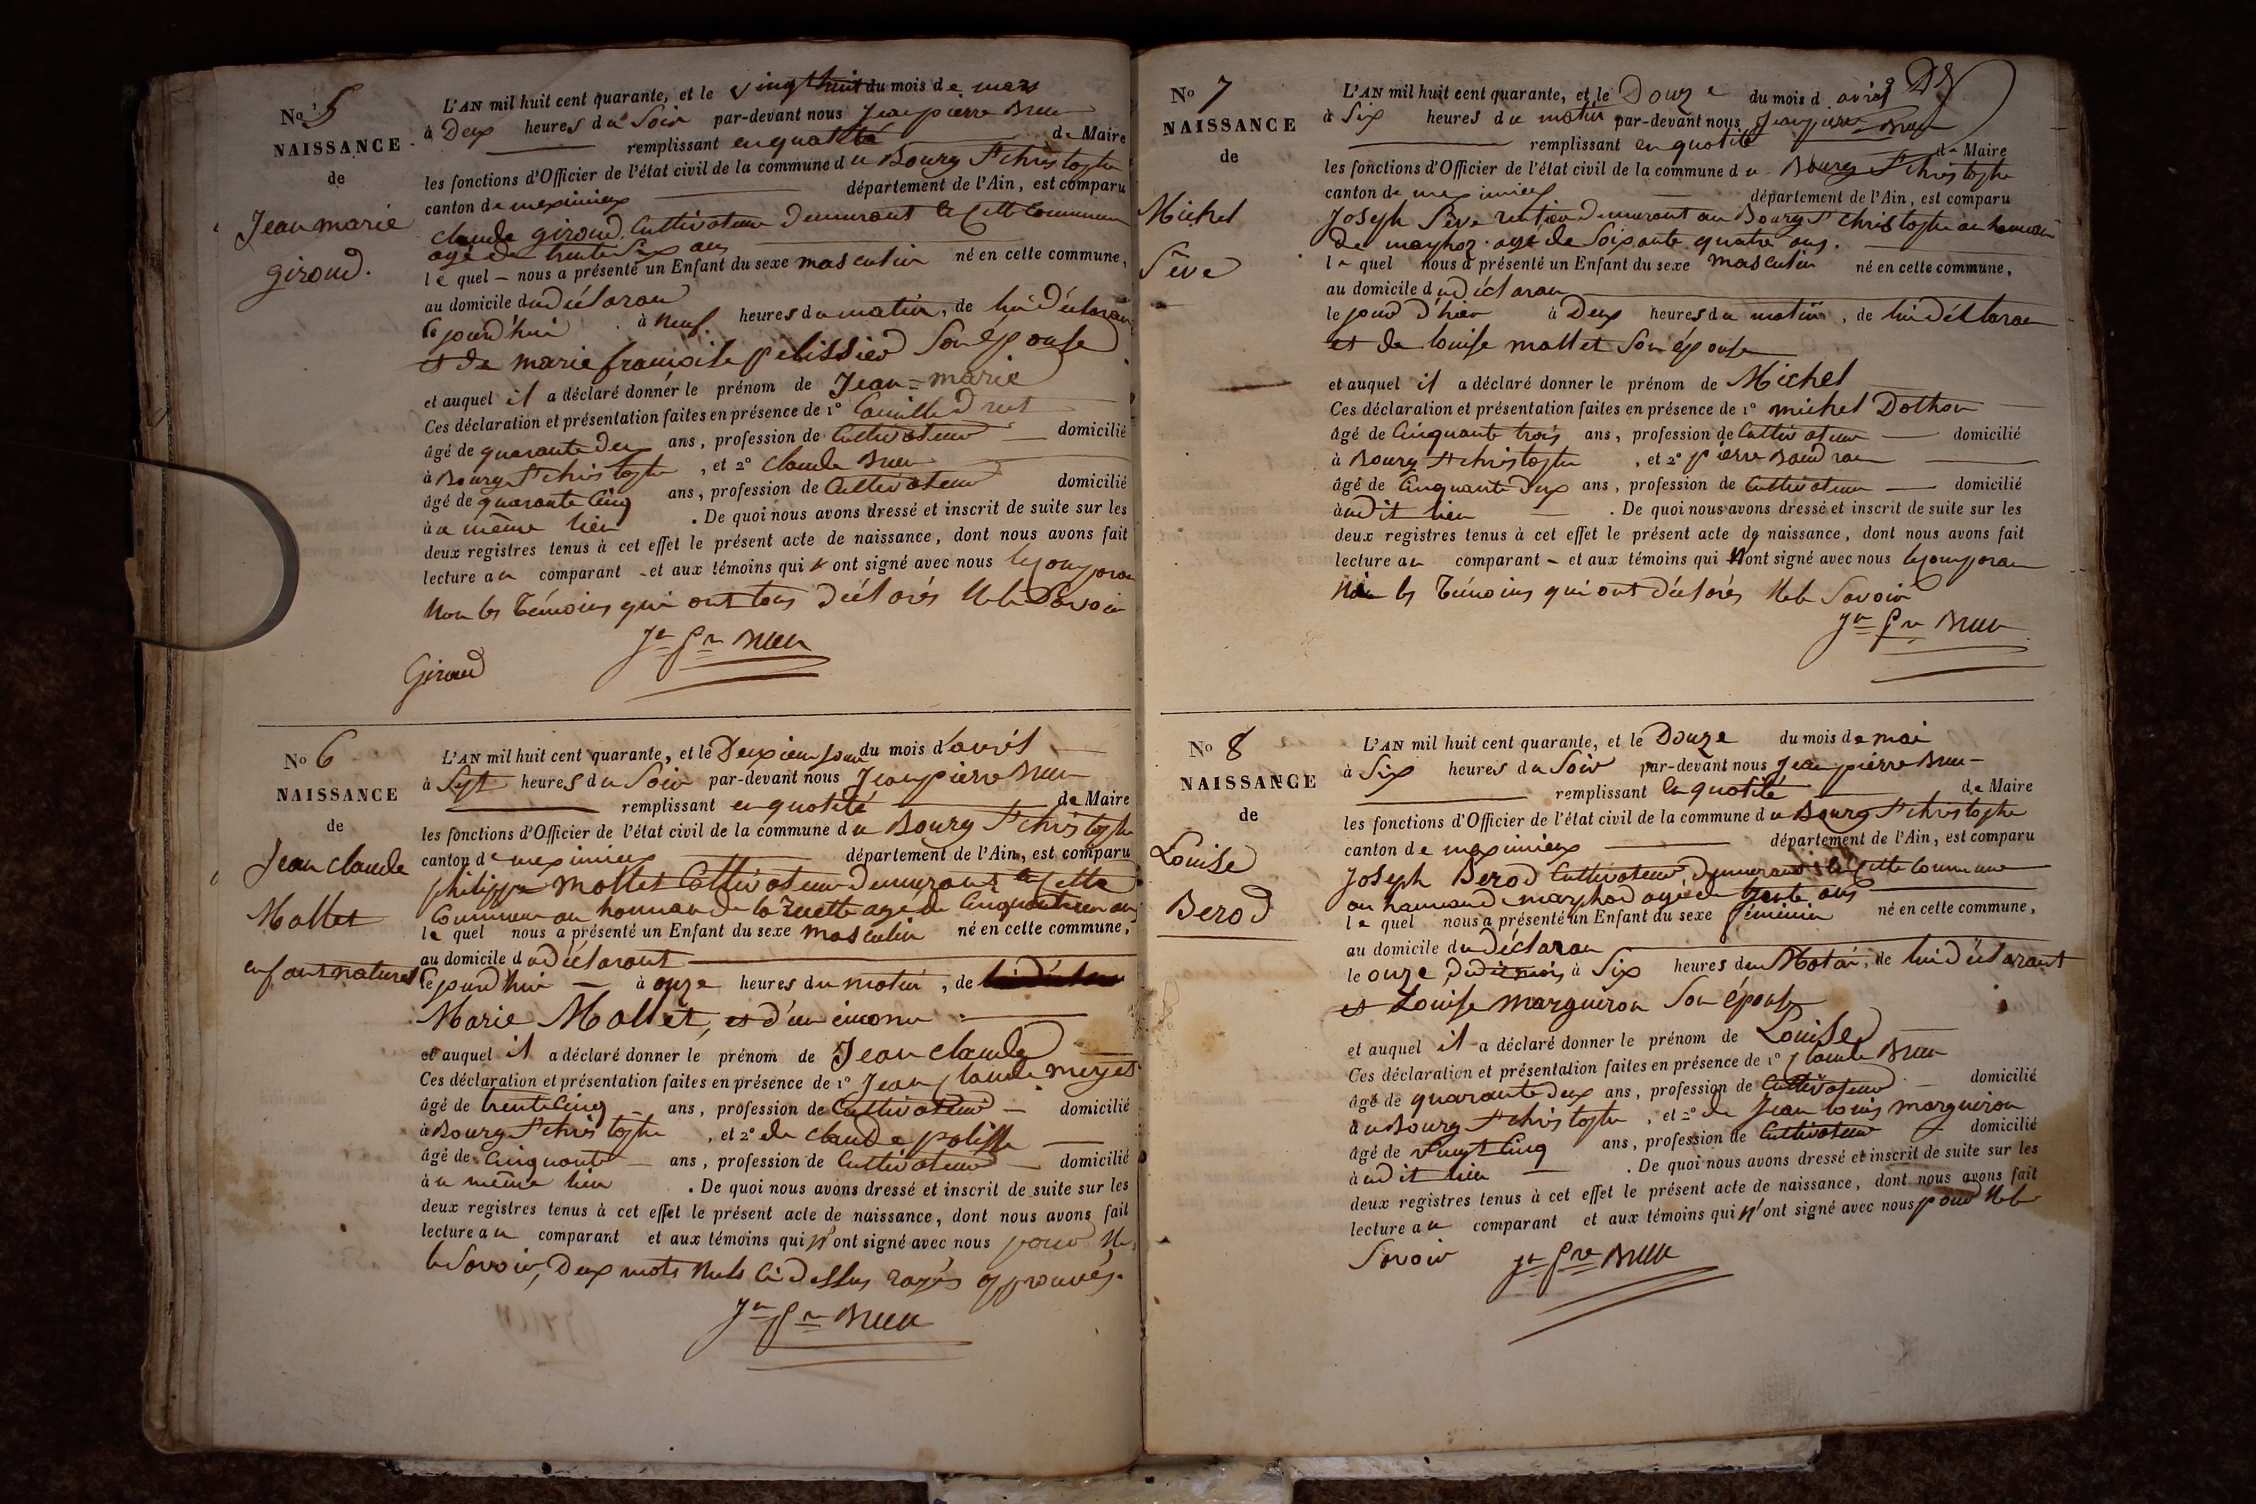 No 5
NAISSANCE
de
Jean marie
giroud.
L'AN mil huit cent quarante, et le vingt huit du mois de mars
à Deux heures du Soir par-devant nous Jean pierre Breu
remplissant en qualité de Maire
les fonctions d'Officier de l'état civil de la commune du Bourg St christophe
canton de meximieux département de l'Ain, est comparu
claude giroud Cultivateur Demeurant en Cette Commune
agé de trente Six ans
le quel nous a présenté un Enfant du sexe masculin né en cette commune,
au domicile du déclarant
ce jourd'hui à neuf heures du matin, de lui déclarant
et de marie françoise pélissier Son épouse
et auquel il a déclaré donner le prénom de Jean-marie
Ces déclaration et présentation faites en présence de 1º Camille
âgé de quarante deux ans, profession de Cultivateur domicilié
à Bourg St christophe, et 2º claude Breu
âgé de quarante Cinq ans, profession de Cultivateur domicilié
au même lieu. De quoi nous avons dressé et inscrit de suite sur les
deux registres tenus à cet effet le présent acte de naissance, dont nous avons fait
lecture au comparant - et aux témoins qui ont signé avec nous le Comparan
Non les Témoins qui ont tous Déclarés Ne le Savoir
Jn Prre Breu
Giroud
No 6
NAISSANCE
de
Jean claude
Mallet
enfant naturel
L'AN mil huit cent quarante, et le Deuxieme Jour du mois d'avril
à Sept heures du Soir par-devant nous Jean pierre Breu
remplissant en qualité de Maire
les fonctions d'Officier de l'état civil de la commune du Bourg St christophe
canton de meximieux département de l'Ain, est comparu
philippe mollet Cultivateur Demeurant en Cette
Commune au hameau de la Ruette agé de Cinquante un ans
le quel nous a présenté un Enfant du sexe masculin né en cette commune,
au domicile du déclarant
Ce jourd'hui à onze heures du matin, de
Marie Mallet, et d'un inconnu
et auquel il a déclaré donner le prénom de Jean claude
Ces déclaration et présentation faites en présence de 1º Jean claude
âgé de trente Cinq ans, profession de Cultivateur domicilié
à Bourg St christophe, et 2º de claude
âgé de Cinquante ans, profession de Cultivateur domicilié
au même lieu. De quoi nous avons dressé et inscrit de suite sur les
deux registres tenus à cet effet le présent acte de naissance, dont nous avons fait
lecture au comparant et aux témoins qui n'ont signé avec nous pour Ne
le Savoir, Deux mots Nuls Ci dessus rayés approuvés.
Jn Prre Breu
No 7
NAISSANCE
de
Michel
Sève
L'AN mil huit cent quarante, et le Douze du mois d'avril
à Six heures du matin par-devant nous Jean pierre Breu
remplissant en qualité de Maire
les fonctions d'Officier de l'état civil de la commune du Bourg St christophe
canton de meximieux département de l'Ain, est comparu
Joseph Sève rentier Demeurant au Bourg St christophe au hameau
de marphoz agé de Soixante quatre ans.
le quel nous a présenté un Enfant du sexe masculin né en cette commune,
au domicile du déclaran
le jour d'hier à Deux heures du matin, de lui déclaran
et de louise mallet Son épouse
et auquel il a déclaré donner le prénom de Michel
Ces déclaration et présentation faites en présence de 1º michel
âgé de Cinquante trois ans, profession de Cultivateur domicilié
à Bourg St christophe, et 2º pierre Baudran
âgé de Cinquante deux ans, profession de Cultivateur domicilié
audit lieu. De quoi nous avons dressé et inscrit de suite sur les
deux registres tenus à cet effet le présent acte de naissance, dont nous avons fait
lecture au comparant - et aux témoins qui N'ont signé avec nous le Comparan
Ni les Témoins qui ont déclarés Ne le Savoir
Jn Prre Breu
No 8
NAISSANCE
de
Louise
Berod
L'AN mil huit cent quarante, et le Douze du mois de mai
à Six heures du Soir par-devant nous Jean pierre Breu
remplissant en qualité de Maire
les fonctions d'Officier de l'état civil de la commune du Bourg St christophe
canton de meximieux département de l'Ain, est comparu
Joseph Berod Cultivateur Demeurant en Cette Commune
au hameau de agé de trente ans
le quel nous a présenté un Enfant du sexe féminin né en cette commune,
au domicile du déclaran
le onze à Six heures du Matin, de lui déclarant
et Louise marguiron Son épouse
et auquel il a déclaré donner le prénom de Louise
Ces déclaration et présentation faites en présence de 1º claude Breu
âgé de quarante deux ans, profession de Cultivateur domicilié
au Bourg St christophe, et 2º de Jean louis marguiron
âgé de vingt Cinq ans, profession de Cultivateur domicilié
audit lieu. De quoi nous avons dressé et inscrit de suite sur les
deux registres tenus à cet effet le présent acte de naissance, dont nous avons fait
lecture au comparant et aux témoins qui N'ont signé avec nous pour Ne le
Savoir Jn Prre Breu